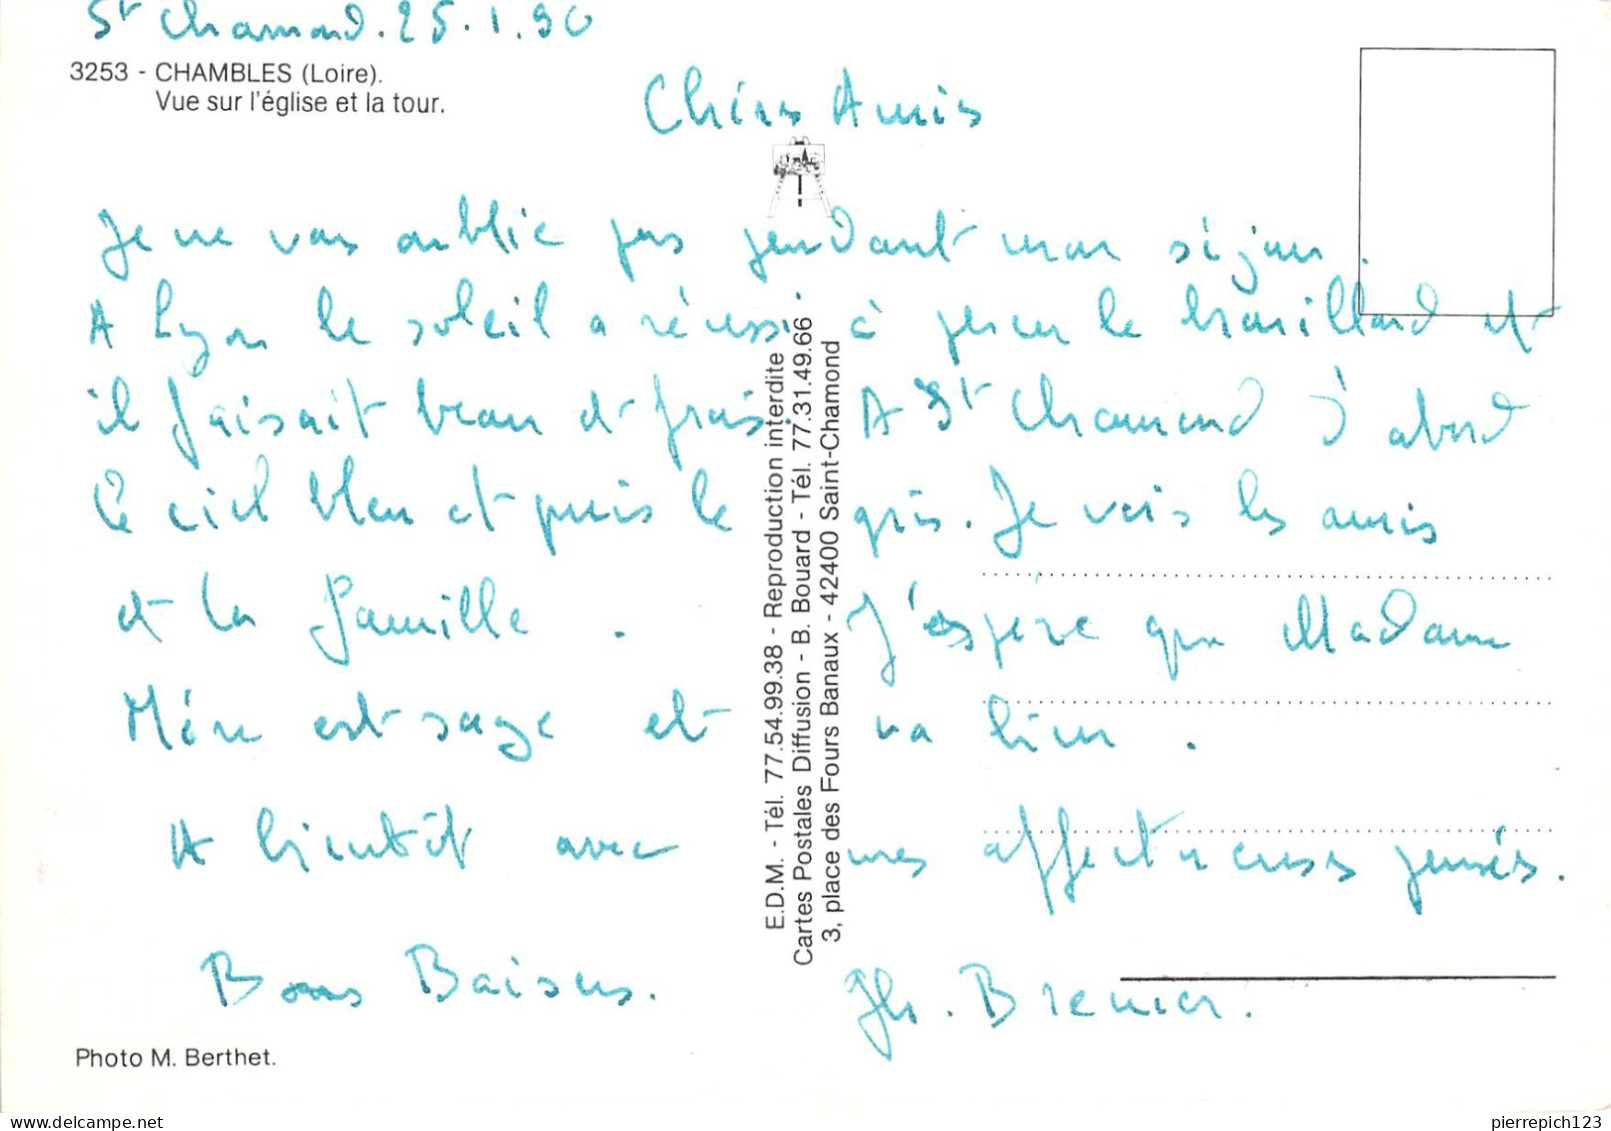 St Chamond. 25.1.90
3253 - CHAMBLES (Loire).
Vue sur l'église et la tour.
Chers Amis
Je ne vous oublie pas pendant mon séjour.
A Lyon le soleil a réussi à percer le brouillard et
il faisait beau et frais. A St Chamond d'abord
le ciel bleu et puis le gris. Je vois les amis
et la famille. J'espère que Madame
Mère est sage et va bien.
A bientôt avec mes affectueuses pensées.
Bons Baisers. Brenier.
E.D.M. - Tél. 77.54.99.38 - Reproduction interdite
Cartes Postales Diffusion - B. Bouard - Tél. 77.31.49.66
3, place des Fours Banaux - 42400 Saint-Chamond
Photo M. Berthet.
pierrepich123